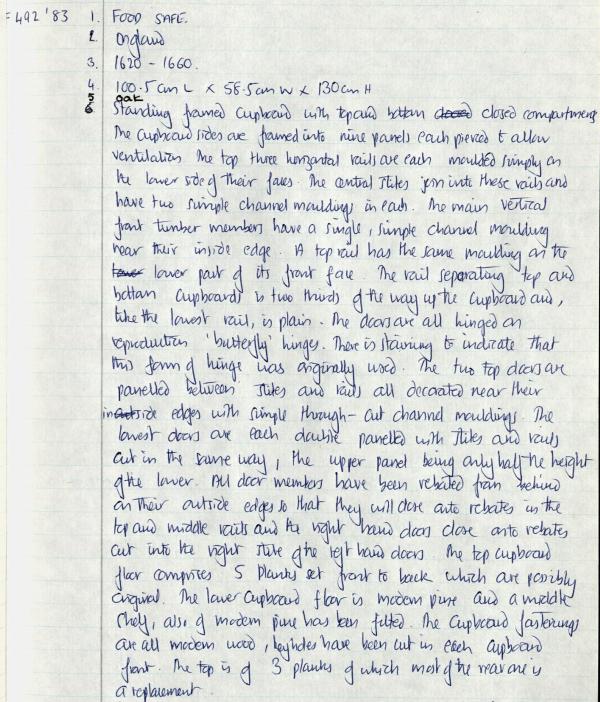 =492 '83 1. FOOD SAFE.
2. England
3. 1620 - 1660.
4. 100.5cm L x 58.5cm W x 130cm H
5 oak
6 Standing framed Cupboard with top and bottom closed compartments
The Cupboard sides are framed into nine panels each pierced to allow
ventilation. The top three horizontal rails are each moulded simply on
the lower side of their faces. The central stiles join into these rails and
have two simple channel mouldings in each. The main vertical
front timber members have a single, simple channel moulding
near their inside edge. A top rail has the same moulding on the
lower lower part of its front face. The rail separating top and
bottom Cupboards is two thirds of the way up the Cupboard and,
like the lowest rail, is plain. The doors are all hinged on
reproduction 'butterfly' hinges. There is staining to indicate that
this form of hinge was originally used. The two top doors are
panelled between stiles and rails all decorated near their
inside edges with simple through-cut channel mouldings. The
lowest doors are each double panelled with stiles and rails
cut in the same way, the upper panel being only half the height
of the lower. All door members have been rebated from behind
on their outside edges so that they will close onto rebates in the
top and middle rails and the right hand doors close onto rebates
cut into the right stile of the left hand doors. The top cupboard
floor comprises 5 planks set front to back which are possibly
original. The lower Cupboard floor is modern pine and a middle
shelf, also of modern pine has been fitted. The Cupboard fastenings
are all modern wood, keyholes have been cut in each cupboard
front. The top is of 3 planks of which most of the rear one is
a replacement.